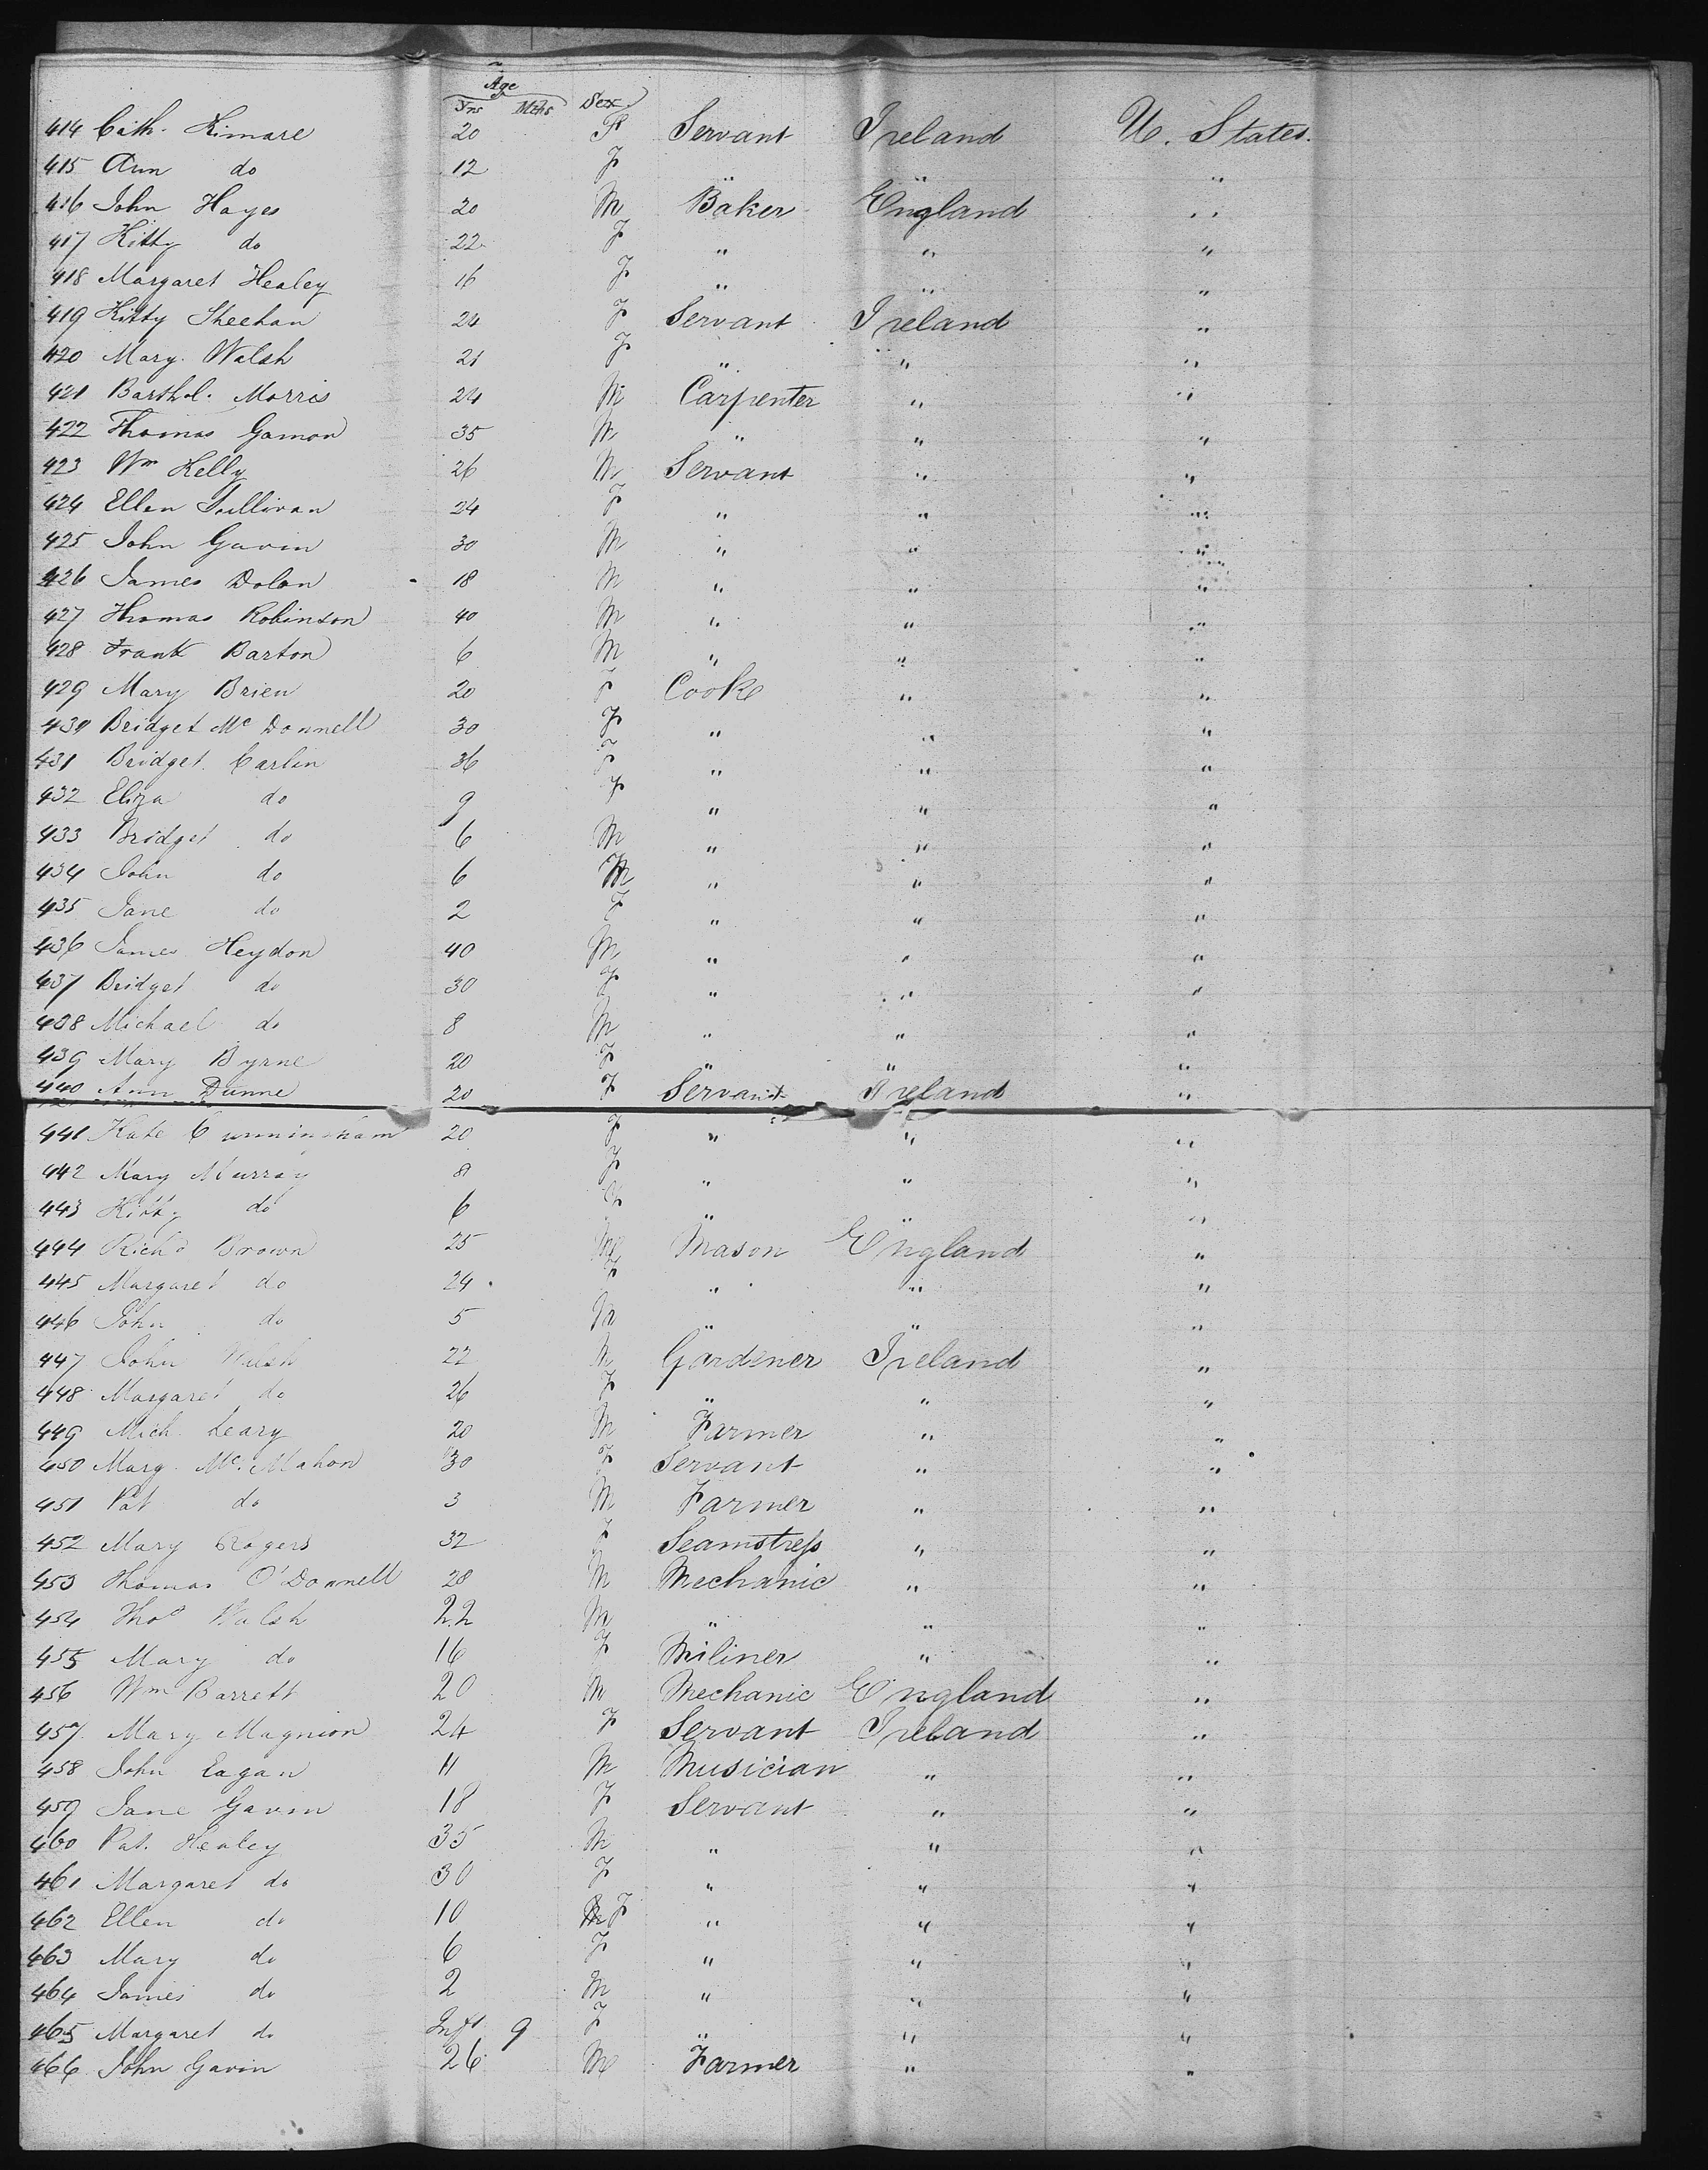 Age
Yrs Mths Sex
414 Cath. Kimare 20 F Servant Ireland U. States.
415 Ann do 12 F " " "
416 John Hayes 20 M Baker England "
417 Kitty do 22 F " " "
418 Margaret Healey 16 F " " "
419 Kitty Sheehan 24 F Servant Ireland "
420 Mary Walsh 21 F " " "
421 Barthol. Morris 24 M Carpenter " "
422 Thomas Gamon 35 M " " "
423 Wm Kelly 26 M Servant " "
424 Ellen Sullivan 24 F " " "
425 John Gavin 30 M " " "
426 James Dolan 18 M " " "
427 Thomas Robinson 40 M " " "
428 Frank Barton 6 M " " "
429 Mary Brien 20 F Cook " "
430 Bridget Mc Donnell 30 F " " "
431 Bridget Carlin 36 F " " "
432 Eliza do 9 F " " "
433 Bridget do 6 M " " "
434 John do 6 M " " "
435 Jane do 2 F " " "
436 James Heydon 40 M " " "
437 Bridget do 30 F " " "
438 Michael do 8 M " " "
439 Mary Byrne 20 F " " "
440 Ann Dunne 20 F Servant Ireland "
441 Kate Cunningham 20 F " " "
442 Mary Murray 8 F " " "
443 Kitty do 6 F " " "
444 Richd Brown 25 M Mason England "
445 Margaret do 24 F " " "
446 John do 5 M " " "
447 John Walsh 22 M Gardener Ireland "
448 Margaret do 26 F " " "
449 Mich. Leary 20 M Farmer " "
450 Marg. Mc. Mahon 30 F Servant " "
451 Pat do 3 M Farmer " "
452 Mary Rogers 32 F Seamstress " "
453 Thomas O'Donnell 28 M Mechanic " "
454 Thos Walsh 22 M " " "
455 Mary do 16 F Miliner " "
456 Wm Barrett 20 M Mechanic England "
457 Mary Magnion 24 F Servant Ireland "
458 John Eagan 11 M Musician " "
459 Jane Gavin 18 F Servant " "
460 Pat. Healey 35 M " " "
461 Margaret do 30 F " " "
462 Ellen do 10 F " " "
463 Mary do 6 F " " "
464 James do 2 M " " "
465 Margaret do Inft 9 F " " "
466 John Gavin 26 M Farmer " "